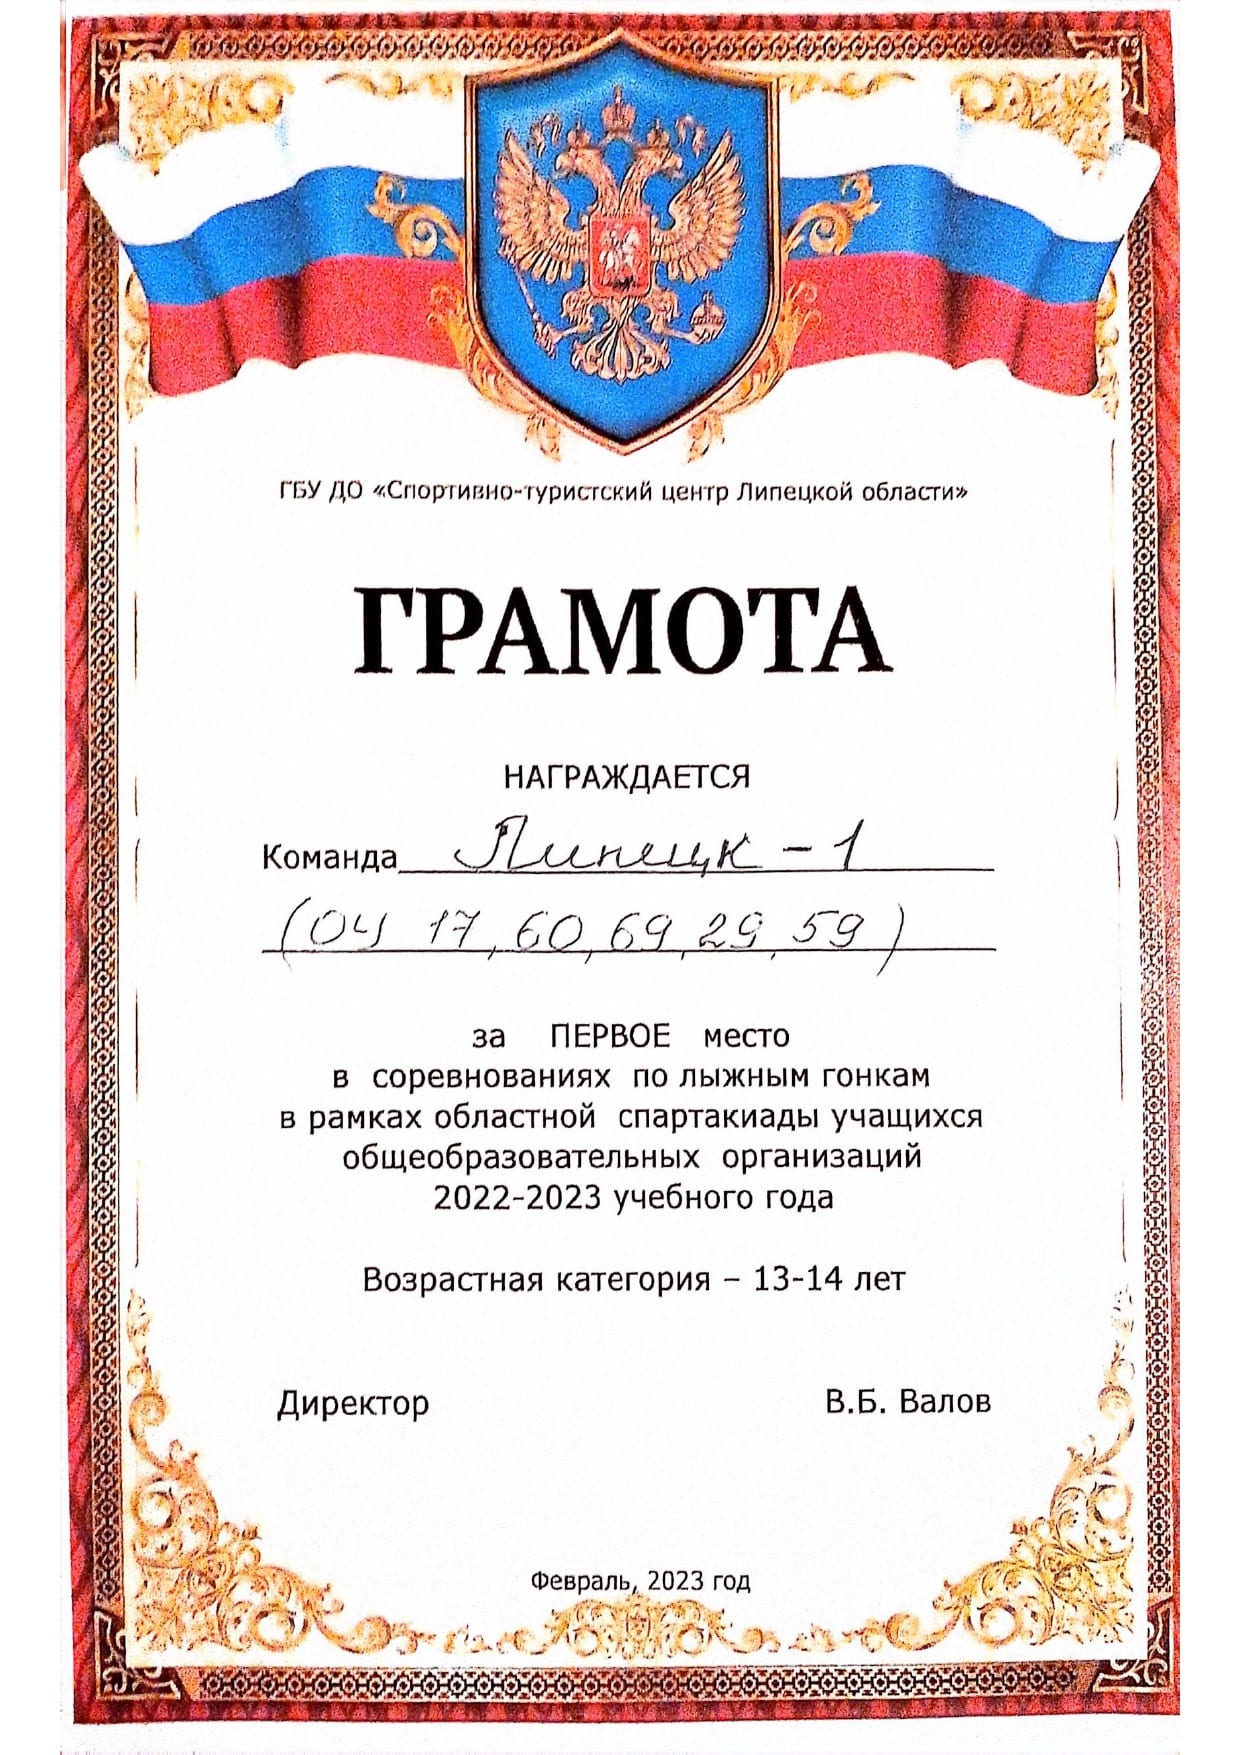 ГБУ ДО «Спортивно-туристский центр Липецкой области»
ГРАМОТА
НАГРАЖДАЕТСЯ
Команда Липецк - 1
(ОУ 17, 60, 69, 29, 59)
за ПЕРВОЕ место
в соревнованиях по лыжным гонкам
в рамках областной спартакиады учащихся
общеобразовательных организаций
2022-2023 учебного года
Возрастная категория – 13-14 лет
Директор В.Б. Валов
Февраль, 2023 год